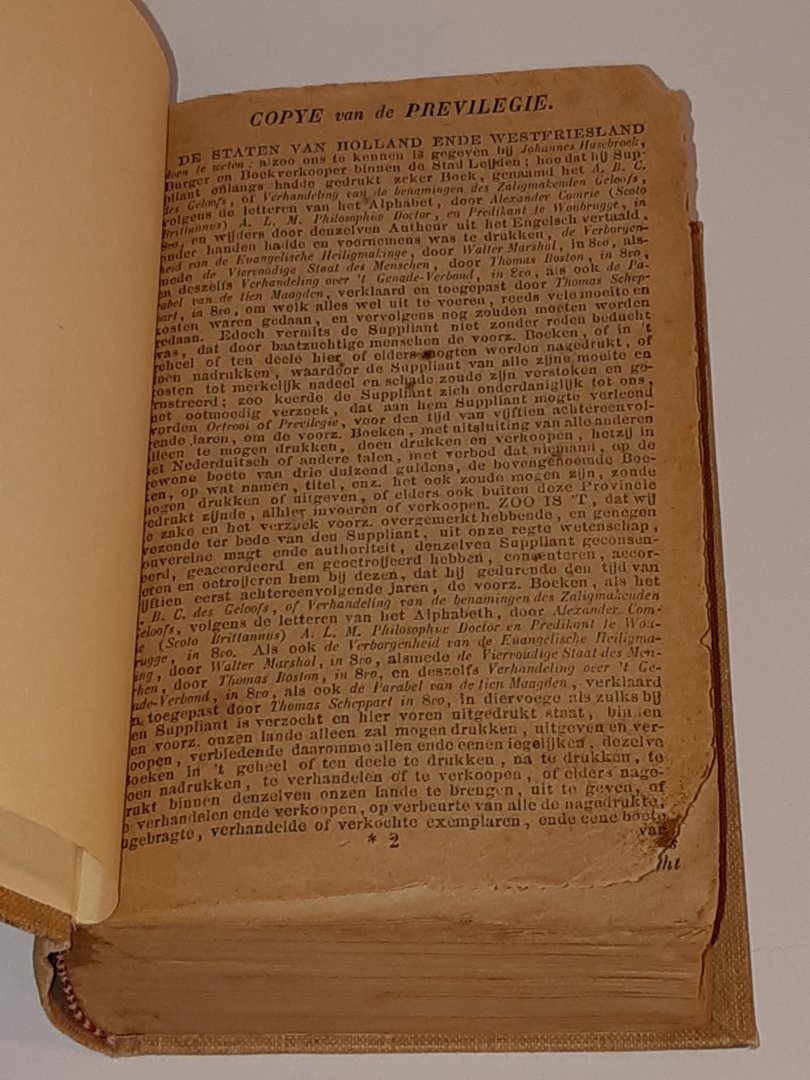 COPYE van de PREVILEGIE.
DE STATEN VAN HOLLAND ENDE WESTFRIESLAND
doen te weten: alzoo ons te kennen is gegeven bij Johannes Hasebroek,
Burger en Boekverkooper binnen de Stad Leijden; hoe dat hij Sup-
pliant onlangs hadde gedrukt zeker Boek, genaamd het A, B, C.
des Geloofs, of Verhandeling van de benamingen des Zaligmakenden Geloofs,
volgens de letteren van het Alphabet, door Alexander Comrie (Scoto
Brittannus) A. L. M. Philosophiæ Doctor, en Predikant te Woubrugge, in
8vo, en wijders door denzelven Autheur uit het Engelsch vertaald,
onder handen hadde en voornemens was te drukken, de Verborgen-
heid van de Evangelische Heiligmakinge, door Walter Marshal, in 8vo, als-
mede de Viervoudige Staat des Menschen, door Thomas Boston, in 8vo,
en deszelfs Verhandeling over 't Genade-Verbond, in 8vo, als ook de Pa-
rabel van de tien Maagden, verklaard en toegepast door Thomas Schep-
part, in 8vo, om welk alles wel uit te voeren, reeds vele moeite en
kosten waren gedaan, en vervolgens nog zouden moeten worden
gedaan. Edoch vermits de Suppliant niet zonder reden beducht
was, dat door baatzuchtige menschen de voorz. Boeken, of in 't
geheel of ten deele hier of elders mogten worden nagedrukt, of
doen nadrukken, waardoor de Suppliant van alle zijne moeite en
kosten tot merkelijk nadeel en schade zoude zijn verstoken en ge-
frustreerd; zoo keerde de Suppliant zich onderdaniglijk tot ons,
met ootmoedig verzoek, dat aan hem Suppliant mogte verleend
worden Octrooi of Previlegie, voor den tijd van vijftien achtereenvol-
gende jaren, om de voorz. Boeken, met uitsluiting van alle anderen
alleen te mogen drukken, doen drukken en verkoopen, hetzij in
het Nederduitsch of andere talen, met verbod dat niemand, op de
gewone boete van drie duizend guldens, de bovengenoemde Boe-
ken, op wat namen, titel, enz. het ook zoude mogen zijn, zonde
mogen drukken of uitgeven, of elders ook buiten deze Provincie
gedrukt zijnde, alhier invoeren of verkoopen. ZOO IS 'T, dat wij
de zake en het verzoek voorz. overgemerkt hebbende, en genegen
wezende ter bede van den Suppliant, uit onze regte wetenschap,
souvereine magt ende authoriteit, denzelven Suppliant geconsen-
teerd, geaccordeerd en geoctroijeerd hebben, consenteren, accor-
deren en octroijeren hem bij dezen, dat hij gedurende den tijd van
vijftien eerst achtereenvolgende jaren, de voorz. Boeken, als het
A. B. C. des Geloofs, of Verhandeling van de benamingen des Zaligmakenden
Geloofs, volgens de letteren van het Alphabeth, door Alexander Com-
rie (Scoto Brittannus) A. L. M. Philosophiæ Doctor en Predikant te Wou-
brugge, in 8vo. Als ook de Verborgenheid van de Euangelische Heiligma-
king, door Walter Marshal, in 8vo, alsmede de Viervoudige Staat des Men-
schen, door Thomas Boston, in 8vo, en deszelfs Verhandeling over 't Ge-
nade-Verbond, in 8vo, als ook de Parabel van de tien Maagden, verklaard
en toegepast door Thomas Scheppart in 8vo, in diervoege als zulks bij
den Suppliant is verzocht en hier voren uitgedrukt staat, binnen
den voorz. onzen lande alleen zal mogen drukken, uitgeven en ver-
koopen, verbiedende daaromme allen ende eenen iegelijken, dezelve
Boeken in 't geheel of ten deele te drukken, na te drukken, te
doen nadrukken, te verhandelen of te verkoopen, of elders nage-
drukt binnen denzelven onzen lande te brengen, uit te geven, of
te verhandelen ende verkoopen, op verbeurte van alle de nagedrukte,
ingebragte, verhandelde of verkochte exemplaren, ende eene boete
* 2 van